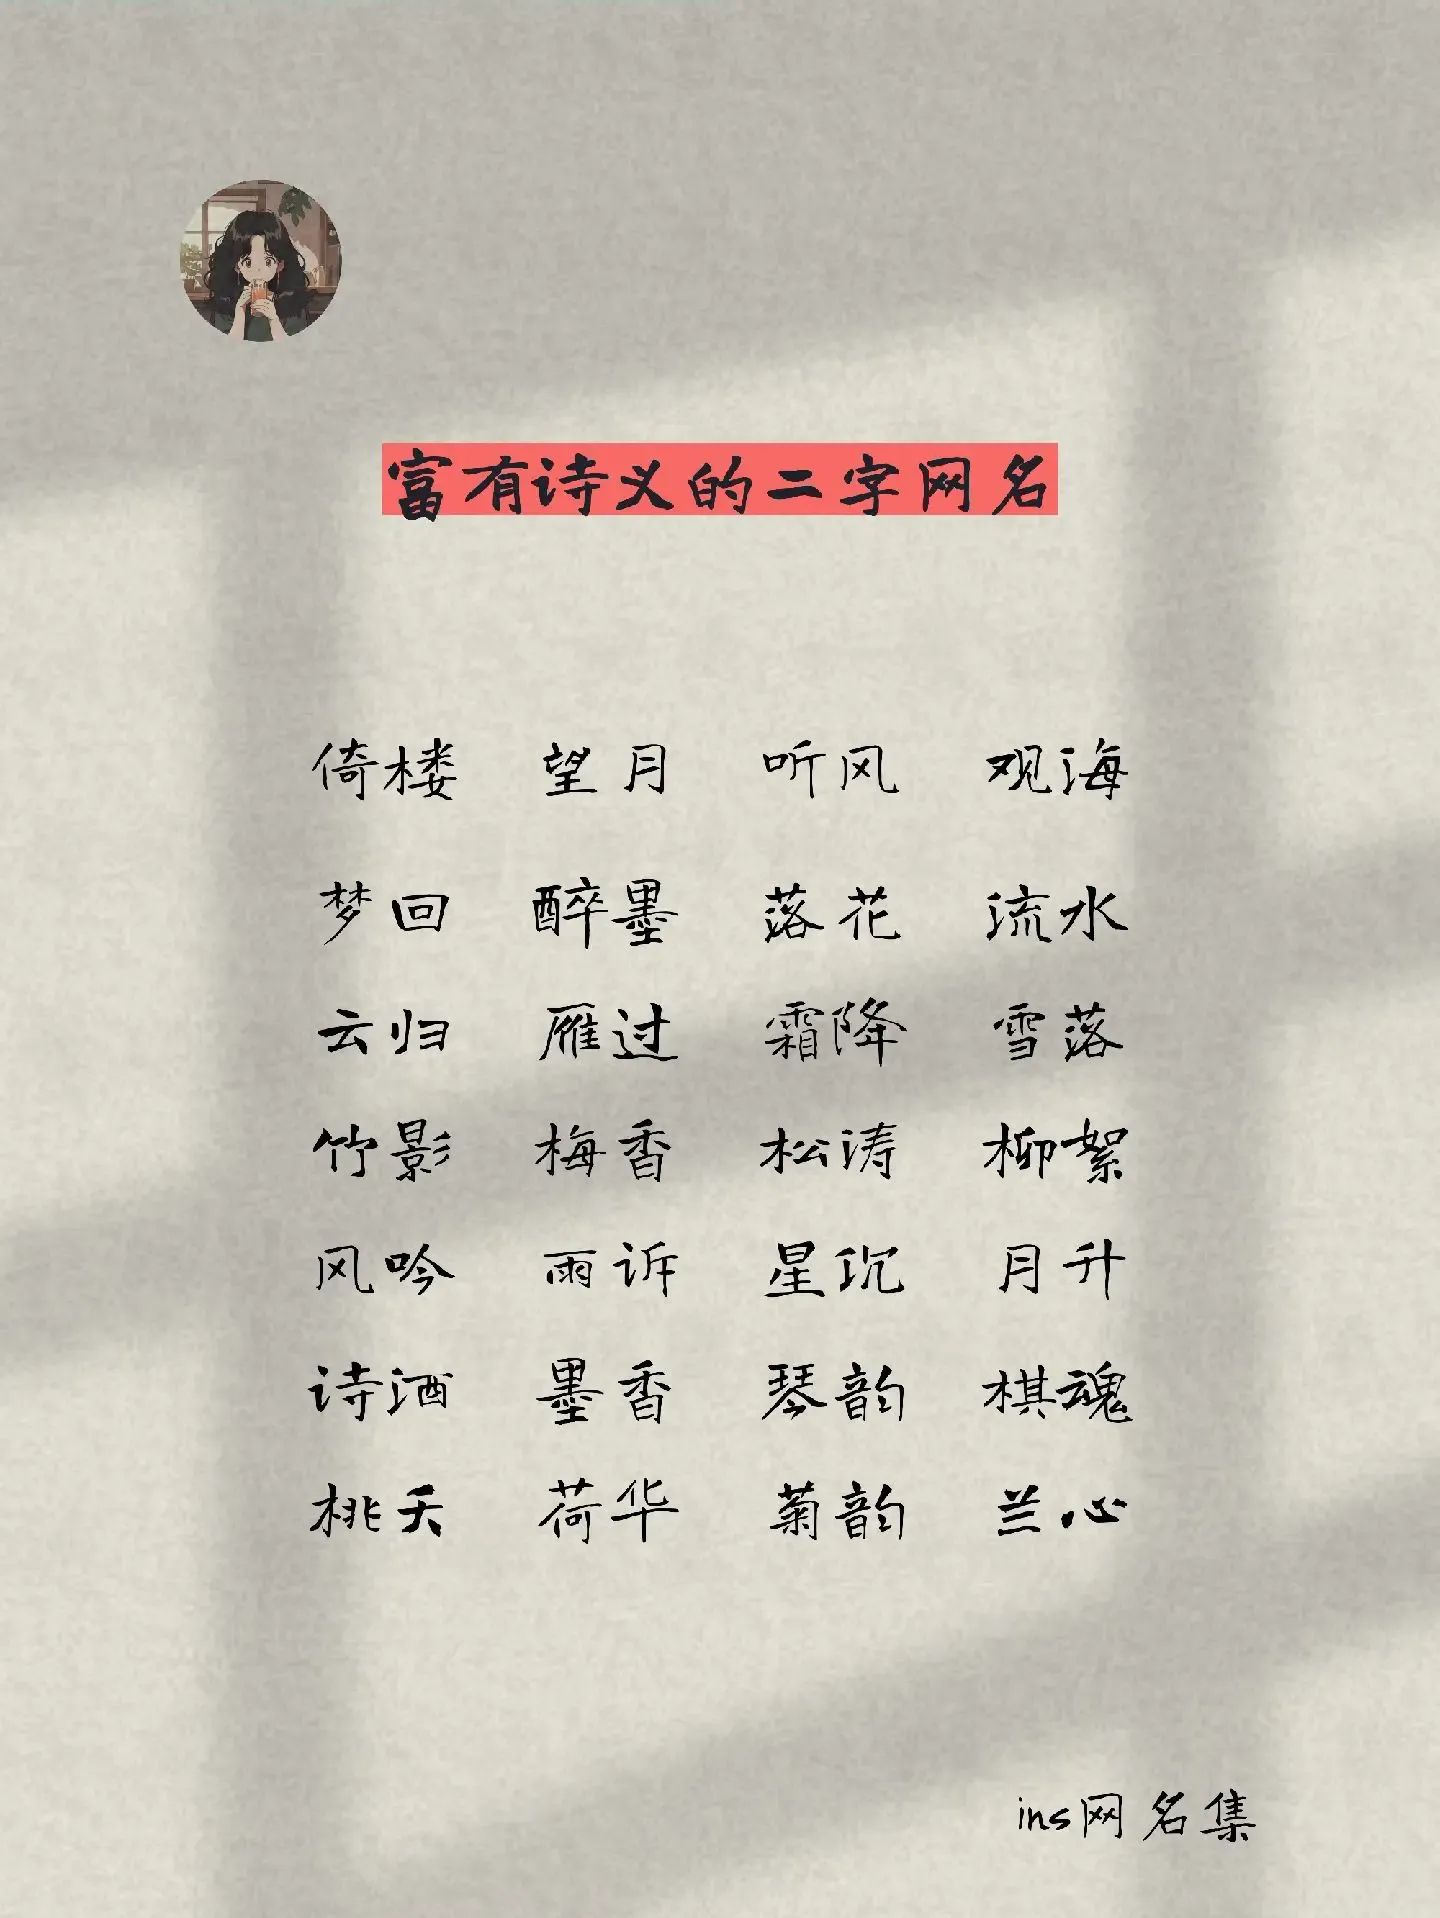 富有诗义的二字网名
倚楼 望月 听风 观海
梦回 醉墨 落花 流水
云归 雁过 霜降 雪落
竹影 梅香 松涛 柳絮
风吟 雨诉 星沉 月升
诗酒 墨香 琴韵 棋魂
桃夭 荷华 菊韵 兰心
ins网名集